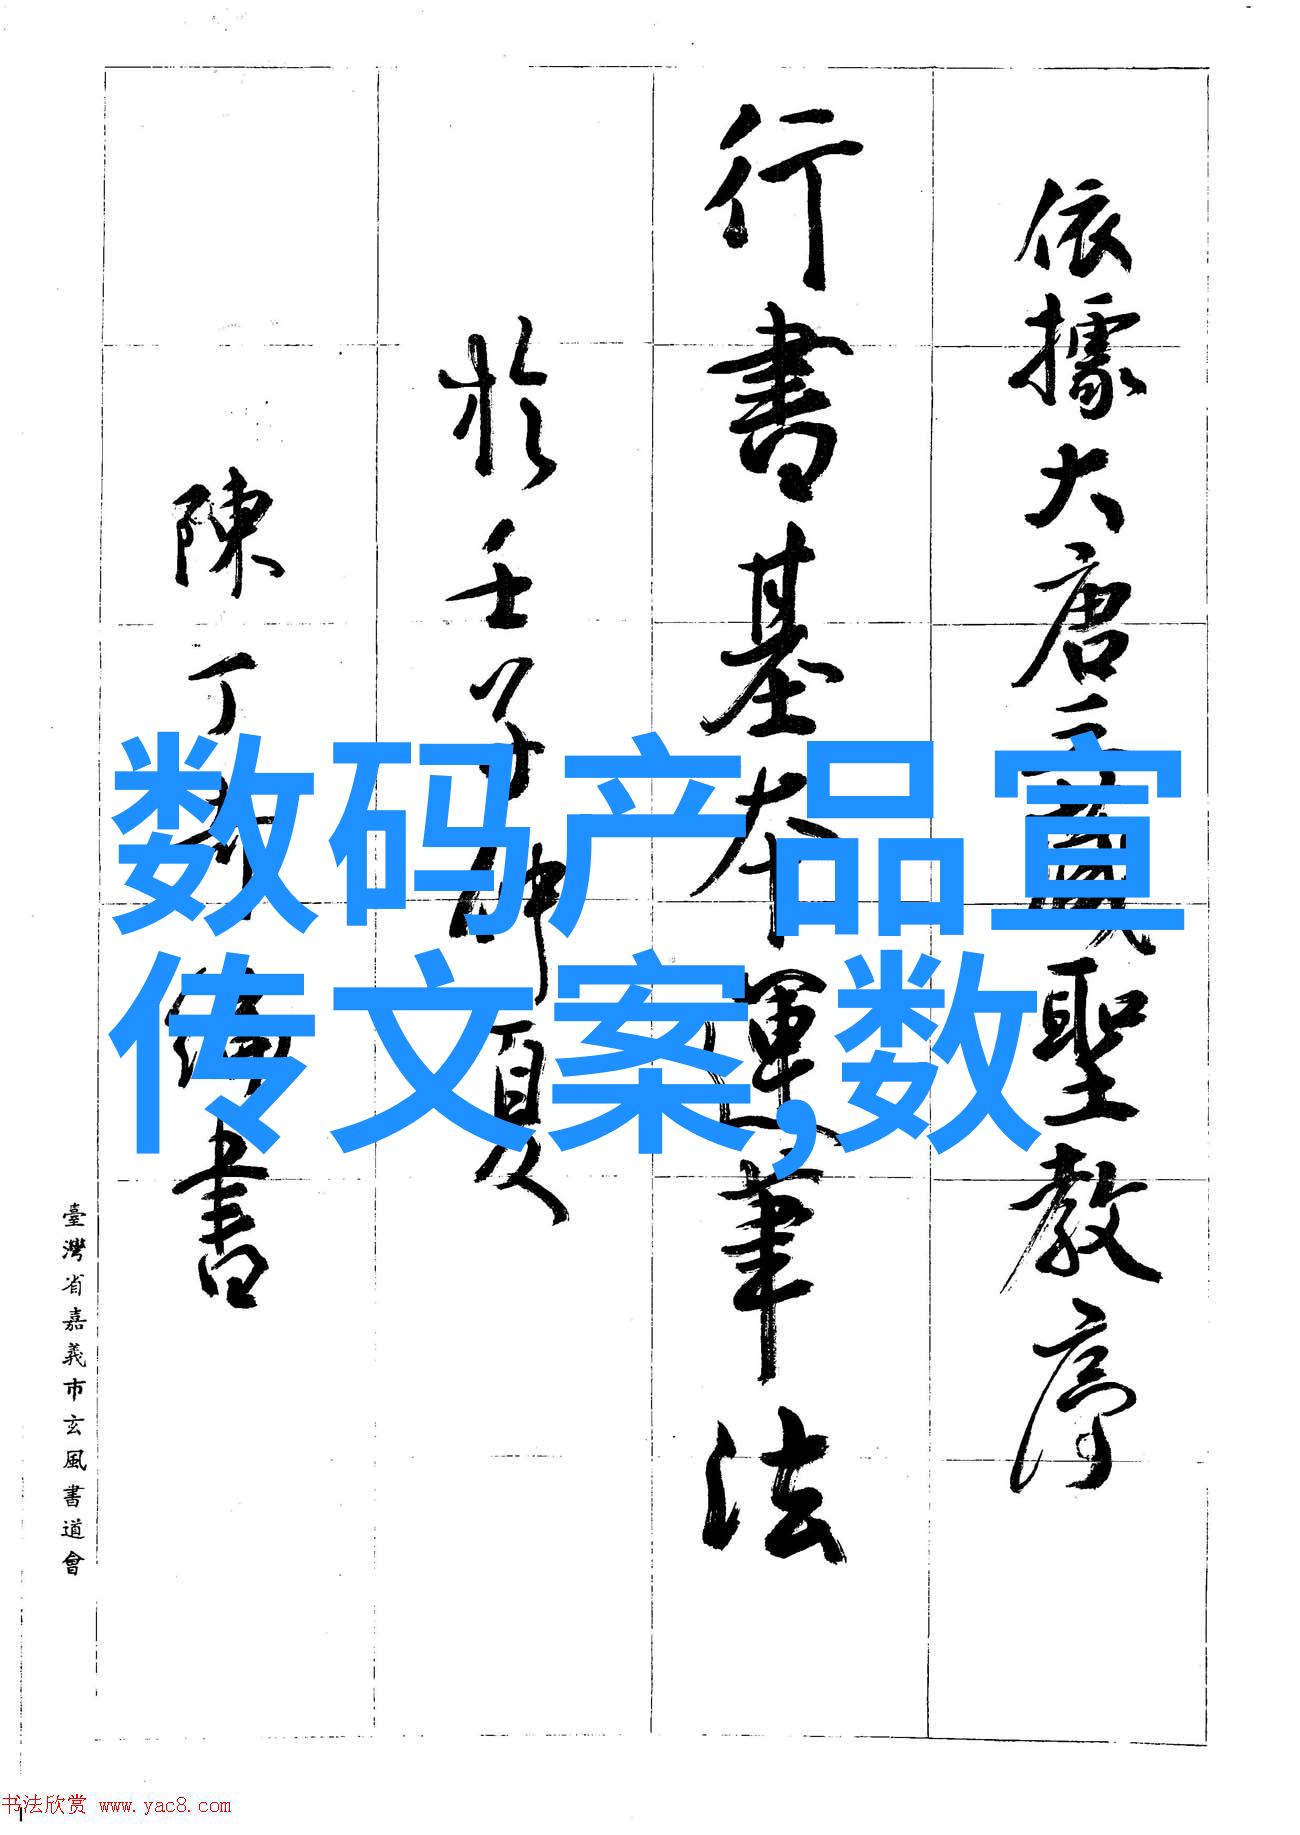 依據大唐三藏聖教序
行書基本運筆法
於壬子仲夏
陳丁奇編書
臺灣省嘉義市玄風書道會
数码产品宣
传文案,数
书法欣赏 www.yac8.com
1